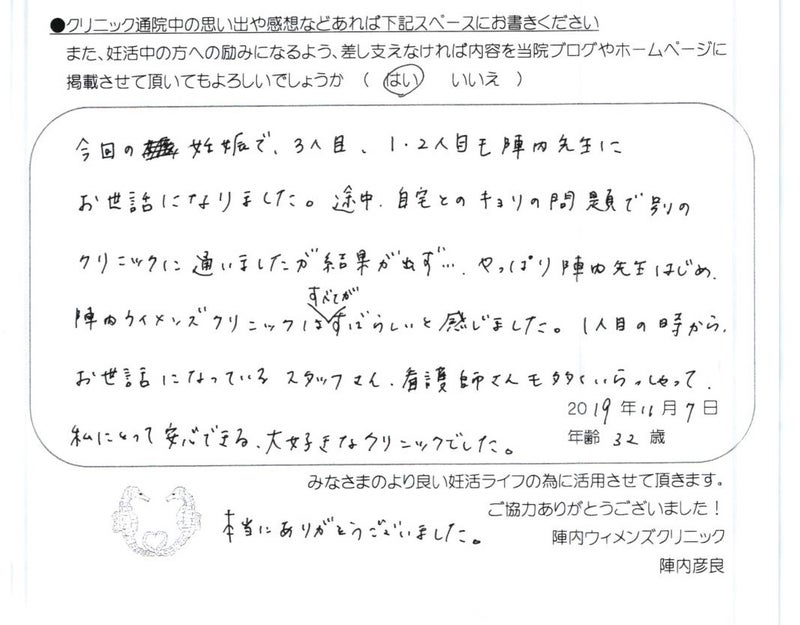 ●クリニック通院中の思い出や感想などあれば下記スペースにお書きください
また、妊活中の方への励みになるよう、差し支えなければ内容を当院ブログやホームページに
掲載させて頂いてもよろしいでしょうか ( はい いいえ )
今回の 妊娠で、3人目、1・2人目も陣内先生に
お世話になりました。途中、自宅とのキョリの問題で別の
クリニックに通いましたが結果が出ず…、やっぱり陣内先生はじめ、
すべてが
陣内ウィメンズクリニックはすばらしいと感じました。1人目の時から、
お世話になっているスタッフさん、看護師さんも多くいらっしゃって、
2019年11月7日
私にとって安心できる、大好きなクリニックでした。
年齢 32 歳
みなさまのより良い妊活ライフの為に活用させて頂きます。
ご協力ありがとうございました！
本当にありがとうございました。
陣内ウィメンズクリニック
陣内彦良